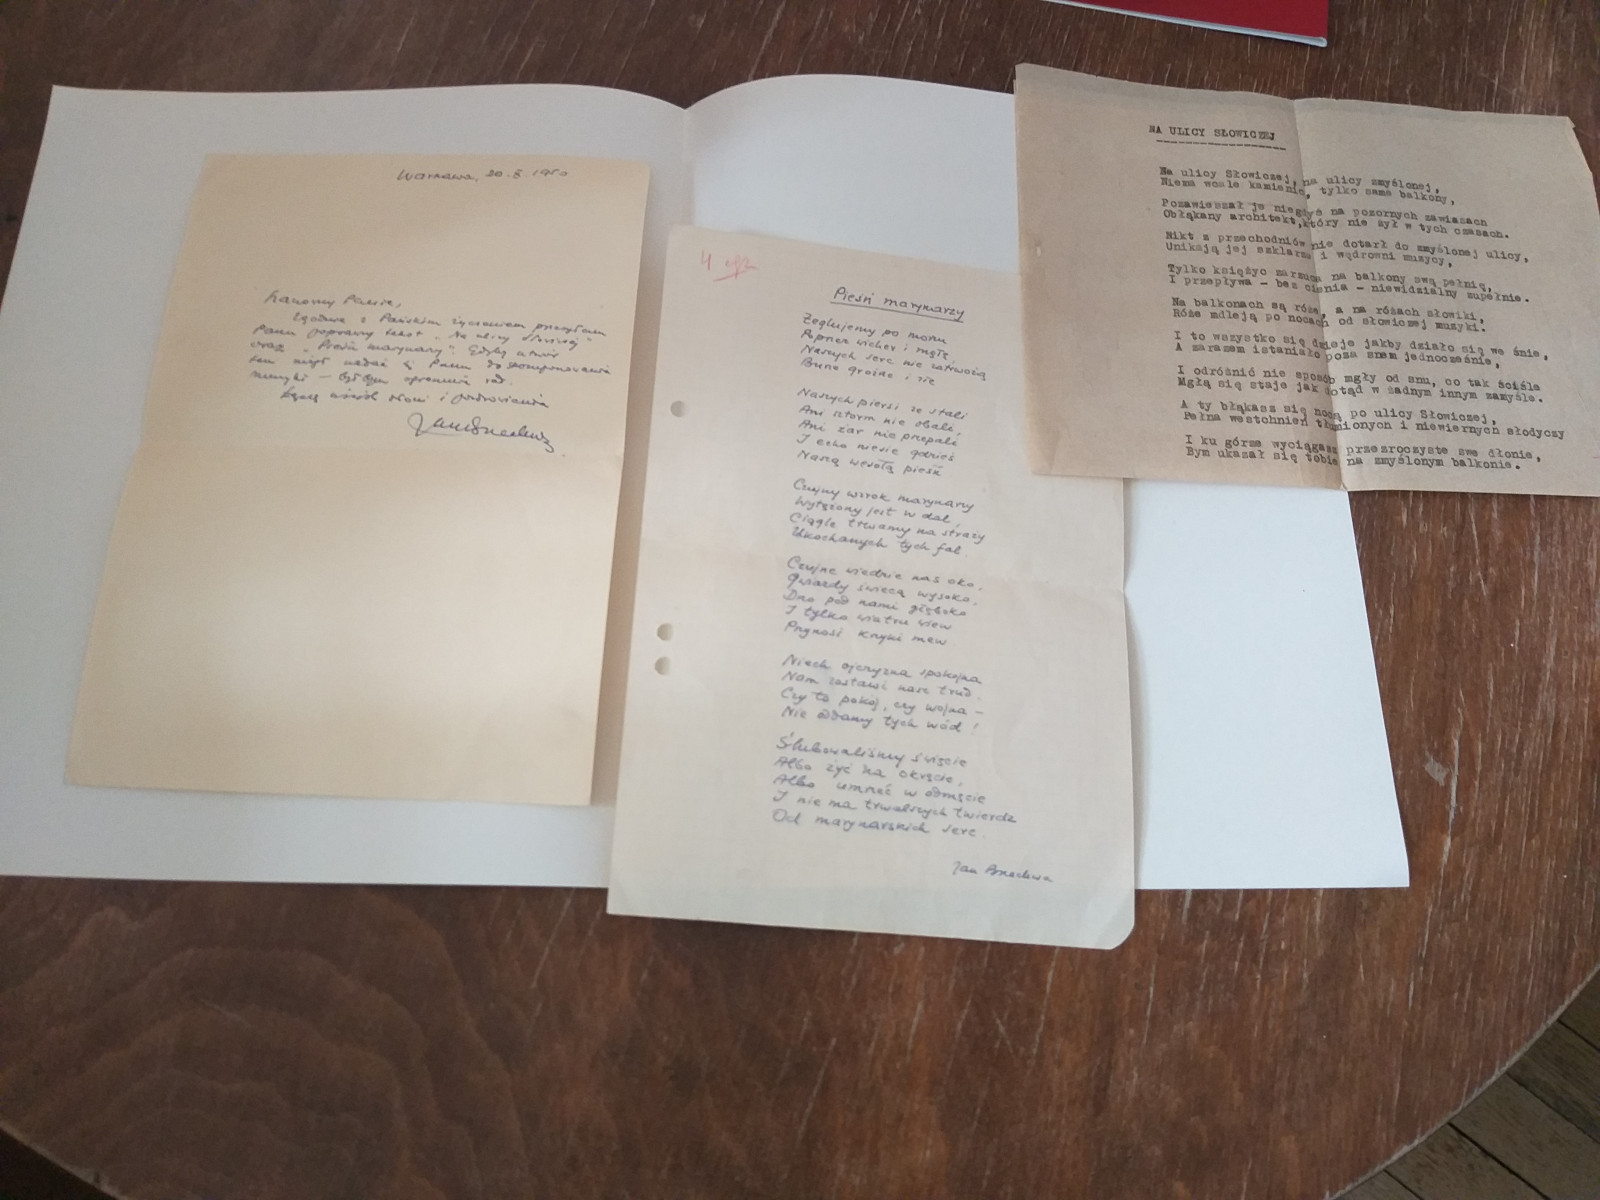 Warszawa, 20.X.1950
Szanowny Panie,
Zgodnie z Pańskim życzeniem przesyłam
Panu poprawny tekst „Na ulicy Słowiczej"
oraz „Pieśń marynarzy". Gdyby utwór
ten mógł nadać się Panu do skomponowania
muzyki — byłbym ogromnie rad.
Łączę uścisk dłoni i pozdrowienia
Jan Brzechwa
4
Pieśń marynarzy
Żeglujemy po morzu
Poprzez wicher i mgłę,
Naszych serc nie zatrwożą
Burze groźne i złe
Naszych piersi ze stali
Ani sztorm nie obali,
Ani żar nie przepali
I echo niesie gdzieś
Naszą wesołą pieśń
Czujny wzrok marynarzy
Wytężony jest w dal,
Ciągle trwamy na straży
Ukochanych tych fal
Czujne wiedzie nas oko,
Gwiazdy świecą wysoko,
Dno pod nami głęboko
I tylko wiatru wiew
Przynosi krzyki mew.
Niech ojczyzna spokojna
Nam zostawi nasz trud.
Czy to pokój, czy wojna —
Nie oddamy tych wód!
Ślubowaliśmy święcie
Albo żyć na okręcie,
Albo umrzeć w odmęcie
I nie ma trwalszych twierdz
Od marynarskich serc.
Jan Brzechwa
NA ULICY SŁOWICZEJ
Na ulicy Słowiczej, na ulicy zmyślonej,
Niema wcale kamienic, tylko same balkony,
Pozawieszał je niegdyś na pozornych zawiasach
Obłąkany architekt, który nie żył w tych czasach.
Nikt z przechodniów nie dotarł do zmyślonej ulicy,
Unikają jej szklarze i wędrowni muzycy,
Tylko księżyc zarzuca na balkony swą pełnię,
I przepływa - bez cienia - niewidzialny zupełnie.
Na balkonach są róże, a na różach słowiki,
Róże mdleją po nocach od słowiczej muzyki.
I to wszystko się dzieje jakby działo się we śnie,
A zarazem istaniało poza snem jednocześnie,
I odróżnić nie sposób mgły od snu, co tak ściśle
Mgłą się staje jak dotąd w żadnym innym zamyśle.
A ty błąkasz się nocą po ulicy Słowiczej,
Pełna westchnień tłumionych i niewiernych słodyczy
I ku górze wyciągasz przezroczyste swe dłonie,
Bym ukazał się tobie na zmyślonym balkonie.